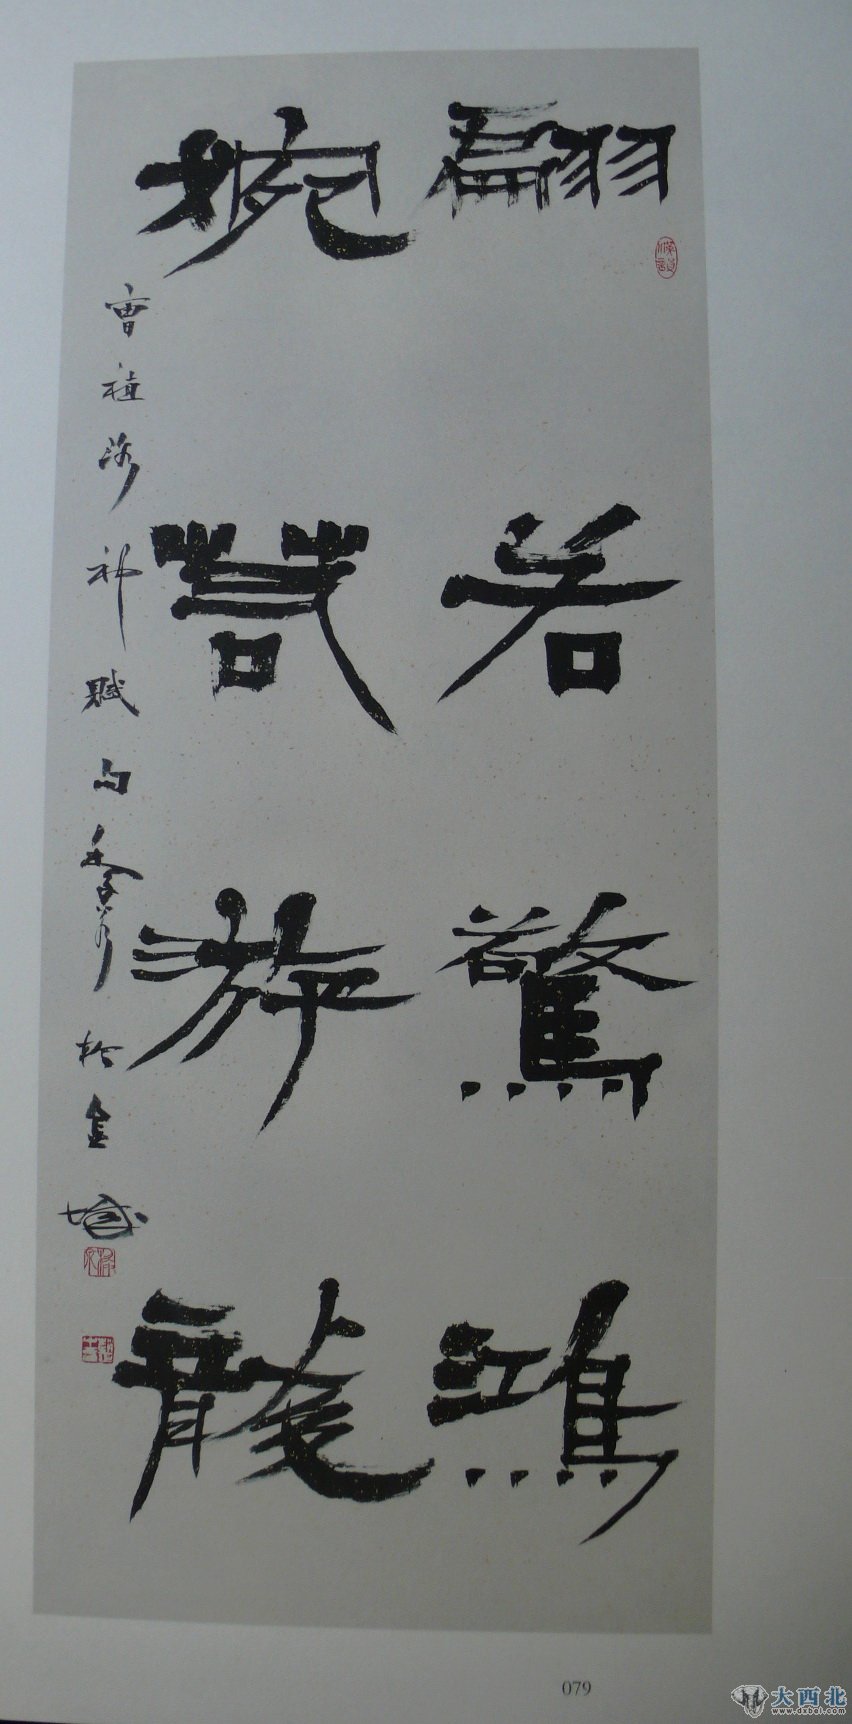 翩若驚鴻
婉若游龍
曹植洛神賦句於金城
079
大西北
www.dxbei.com